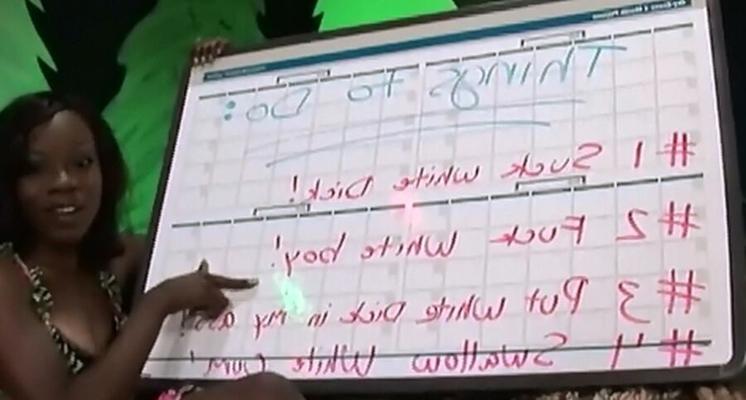 THINGS TO DO:
#1 Suck White Dick!
#2 Fuck White boy!
#3 Put White Dick in my ass!
#4 Swallow White Cum!